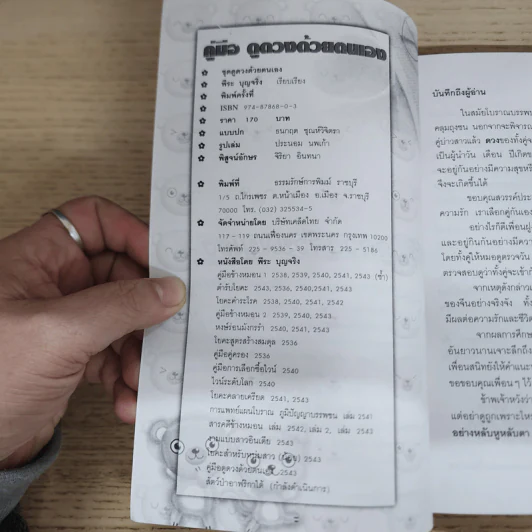 คู่มือ ดูดวงด้วยตนเอง
✿ ชุดดูดวงด้วยตนเอง
✿ พีระ บุญจริง เรียบเรียง
✿ พิมพ์ครั้งที่
✿ ISBN 974-87868-0-3
✿ ราคา 170 บาท
✿ แบบปก ธนกฤต ชุณห์วิจิตรา
✿ รูปเล่ม ประนอม นพเก้า
✿ พิสูจน์อักษร จิริยา อินทนา
✿ พิมพ์ที่ ธรรมรักษ์การพิมพ์ ราชบุรี
1/5 ถ.ไกรเพชร ต.หน้าเมือง อ.เมือง จ.ราชบุรี
70000 โทร. (032) 325534-5
✿ จัดจำหน่ายโดย บริษัทเคล็ดไทย จำกัด
117-119 ถนนเฟื่องนคร เขตพระนคร กรุงเทพ 10200
โทรศัพท์ 225-9536-39 โทรสาร 225-5186
✿ หนังสือโดย พีระ บุญจริง
คู่มือข้างหมอน 1 2538, 2539, 2540, 2541, 2543 (ซ้ำ)
ตำรับโยคะ 2543, 2536, 2540,2541, 2543
โยคะค่าระโรค 2538, 2540, 2541, 2542
คู่มือข้างหมอน 2 2539, 2540, 2543
หงษ์ร่อนมังกรรำ 2540, 2541, 2543
โยคะสูตรสร้างสมดุล 2536
คู่มือคู่ครอง 2536
คู่มือการเลือกซื้อไวน์ 2540
ไวน์ระดับโลก 2540
โยคะคลายเครียด 2541, 2543
การแพทย์แผนโบราณ ภูมิปัญญาบรรพชน เล่ม 2541
สารคดีข้างหมอน เล่ม 2542, เล่ม 2, เล่ม 2543
งามแบบสาวอินเดีย 2543
โยคะสำหรับหนุ่มสาว 2543
คู่มือดูดวงด้วยตนเอง 2543
สัตว์ป่าอาฟริกาใต้ (กำลังดำเนินการ)
บันทึกถึงผู้อ่าน
ในสมัยโบราณบรรพบุ
คลุมถุงชน นอกจากจะพิจารณ
คู่บ่าวสาวแล้ว ดวงของทั้งคู่จะ
เป็นผู้นำวัน เดือน ปีเกิดข
จะอยู่กันอย่างมีความสุขหรื
จึงจะเกิดขึ้นได้
ขอบคุณสวรรค์ประ
ความรัก เราเลือกคู่กันเอง
อย่างไรก็ดีเพื่อนฝู
และอยู่กินกันอย่างมีความ
โดยทั้งคู่ให้หมอดูตรวจวัน
ตรวจสอบดูว่าทั้งคู่จะเข้ากั
จากเหตุดังกล่าวเ
ของจีนอย่างจริงจัง ทั้ง
มีผลต่อความรักและชีวิต
จากผลการศึกษ
อันยาวนานเจาะลึกถึง
เพื่อนสนิทยังให้คำแนะ
ขอขอบคุณเพื่อน ๆ ไว้
ข้าพเจ้าหวังว่า
แต่อย่าดูถูกเพราะโห
อย่างหลับหูหลับตา